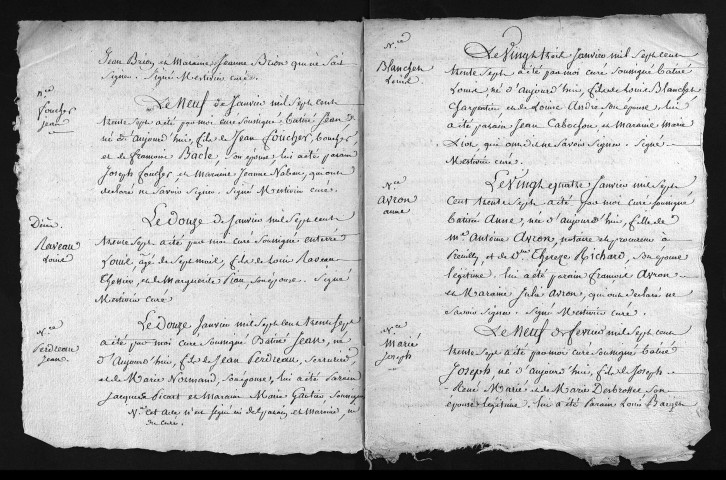 Jean Brion, et Maraine Jeanne Brion qui ne Sait
Signer. Signé Mestivier curé.
N.ce
Foucher
jean
Le Neuf de Janvier mil Sept cent
trente Sept a été par moi curé Soussigné Batisé Jean
né d'aujourd'hui, fils de Jean Foucher, boucher
et de francoise Bacle, Son épouse lui a été parain
Joseph Foucher et maraine Jeanne
declaré ne Savoir Signer. Signé Mestivier curé.
Décès
Raveau
Louis
Le Douze de Janvier mil Sept cent
trente Sept a été par moi curé Soussigné enterré
Louis, agé de Sept mois, fils de Louis Raveau
Tessier, et de Marguerite Pion, Son épouse. Signé
Mestivier curé
N.ce
Perdreau
jean
Le Douze Janvier mil Sept cent trente Sept
a été par moi curé Soussigné Batisé Jean, né
d'Aujourd'hui, fils de Jean Perdreau, Serrurier
et de Marie Normand, Son épouse; lui a été Parain
Jacques Picart et Maraine Marie Gautier, Soussignés
N.ta Cet acte n'est signé ni du parain, et maraine, ni
du curé.
N.ce
Blanchet
Louise
Le Vingt trois Janvier mil Sept cent
trente Sept a été par moi curé Soussigné Batisé
Louis, né d'Aujourd'hui, fils de Louis Blanchet
Charpentier et de Louise André Son épouse, lui
a été parain Jean Cabochon, et maraine marie
qui ont dit ne Savoir Signer. Signé
Mestivier curé.
N.ce
Avron
anne
Le Vingt quatre Janvier mil Sept
Cent trente Sept a été par moi curé Soussigné
batisée Anne, née d'Aujourd'hui, fille de
m.e Antoine Avron, notaire et procureur à
Preuilly et de D.lle Thereze Richard, Son épouse
légitime. lui a été parain francois Avron
et Maraine Julie Avron, qui ont déclaré ne
Savoir Signer. Signé Mestivier curé.
N.ce
Marié
Joseph
Le Neuf de fevrier mil Sept cent
trente Sept a été par moi curé Soussigné batisé
Joseph né d'aujourd'hui, fils de Joseph
René Marié et de Marie Desbrosses Son
épouse légitime. lui a été Parain Louis Barger